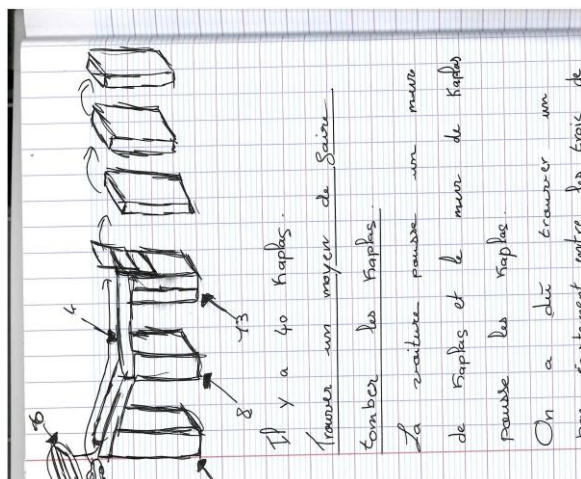 4
8
13
Il y a 40 Kaplas.
Trouver un moyen de faire
tomber les Kaplas.
La voiture pousse un mur
de Kaplas et le mur de Kaplas
pousse les Kaplas.
On a dû trouver un
entre les trois de